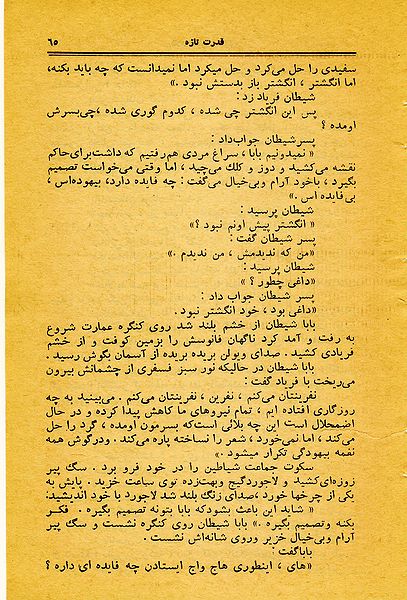 قدرت تازه
٦٥
سفیدی را حل می‌کرد و حل میکرد اما نمیدانست که چه باید بکنه،
اما انگشتر ، انگشتر باز بدستش نبود .»
شیطان فریاد زد :
پس این انگشتر چی شده ، کدوم گوری شده ،چی‌بسرش
اومده ؟
پسر شیطان جواب‌داد :
« نمیدونیم بابا ، سراغ مردی هم‌رفتیم که داشت‌برای‌حاکم
نقشه می‌کشید و دوز و کلك می‌چید ، اما وقتی می‌خواست تصمیم
بگیرد ، باخود آرام وبی‌خیال می‌گفت : چه فایده دارد، بیهوده‌اس ،
بی‌فایده اس .»
شیطان پرسید :
« انگشتر پیش اونم نبود ؟»
پسر شیطان گفت :
«من که ندیدمش ، من ندیدم .»
شیطان پرسید :
«داغی چطور ؟ »
پسر شیطان جواب داد :
«داغی بود ، خود انگشتر نبود .
بابا شیطان از خشم بلند شد روی کنگره عمارت شروع
به رفت و آمد کرد ناگهان فانوسش را بزمین کوفت و از خشم
فریادی کشید . صدای ویولن بریده بریده از آسمان بگوش رسید .
بابا شیطان در حالیکه نور سبز فسفری از چشمانش بیرون
می‌ریخت با فریاد گفت :
نفرینتان می‌کنم ، نفرین ، نفرینتان می‌کنم . می‌بینید به چه
روزگاری افتاده ایم ، تمام نیروهای ما کاهش پیدا کرده و در حال
اضمحلال است این چه بلائی است‌که بسرمون اومده ، گرد را حل
می‌کند ، اما نمی‌خورد ، شعر را نساخته پاره می‌کند . ودرگوش همه
نغمه بیهودگی تکرار میشود .»
سکوت جماعت شیاطین را در خود فرو برد . سگ پیر
زوزه‌ای‌کشید و لاجوردگیج وبهت‌زده توی ساعت خزید . پایش به
یکی از چرخها خورد ،صدای زنگ بلند شد لاجورد با خود اندیشید:
« شاید این باعث بشودکه بابا بتونه تصمیم بگیره . فکر
بکنه وتصمیم بگیره .» بابا شیطان روی کنگره نشست و سگ پیر
آرام وبی‌خیال خزیر وروی شانه‌اش نشست .
باباگفت :
«های ، اینطوری هاج واج ایستادن چه فایده ای داره ؟